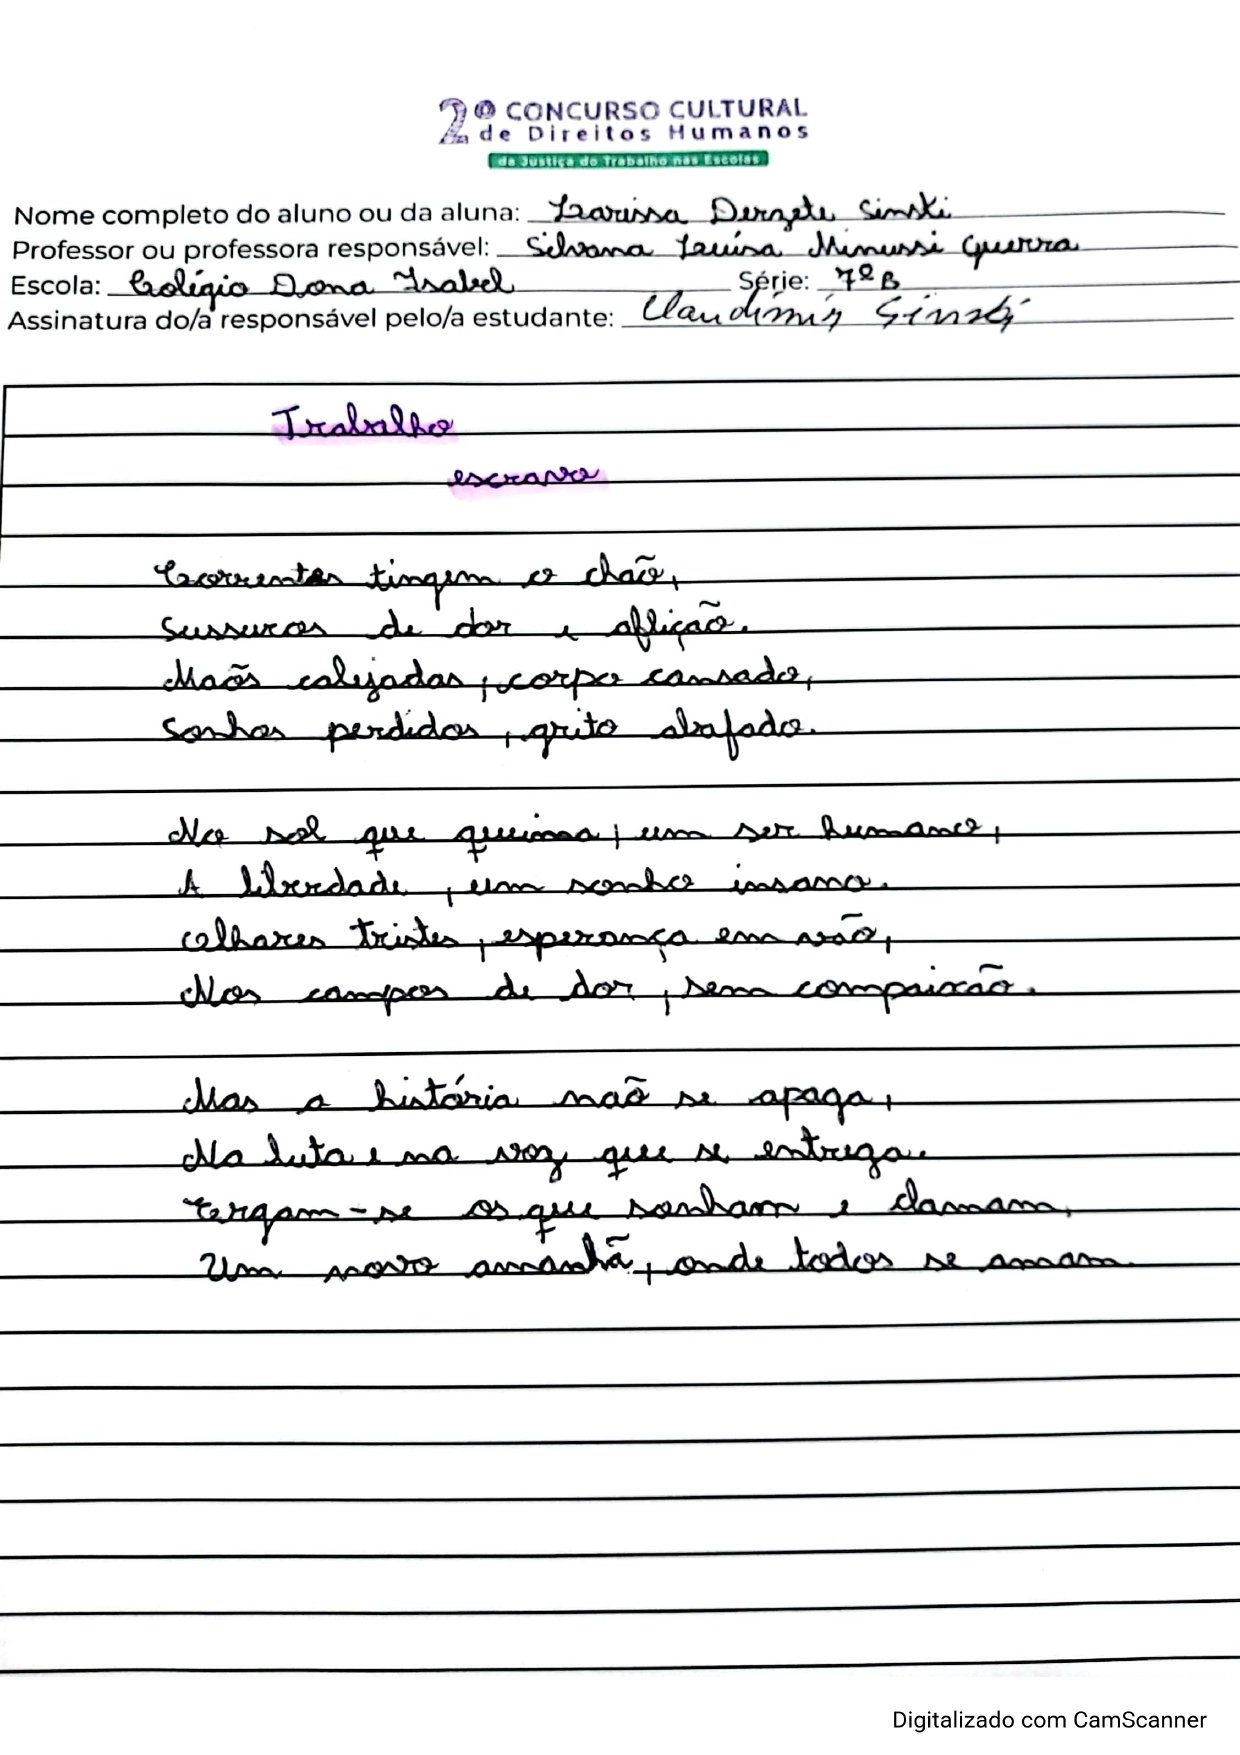 2º CONCURSO CULTURAL
de Direitos Humanos
da Justiça do Trabalho nas Escolas
Nome completo do aluno ou da aluna: Larissa Derzete Sinski
Professor ou professora responsável: Silvana Luísa Minussi Guerra
Escola: Colégio Dona Isabel Série: 7º B
Assinatura do/a responsável pelo/a estudante: Claudimir Sinski
Trabalho
escravo
Correntes tingem o chão,
Sussuros de dor e aflição.
Maõs calejadas, corpo cansado,
Sonhos perdidos, grito abafado.
No sol que queima, um ser humano,
A liberdade, um sonho insano.
Olhares tristes, esperança em vão,
Nos campos de dor, sem compaixão.
Mas a história naõ se apaga,
Na luta e na voz que se entrega.
Ergam-se os que sonham e clamam,
Um novo amanhã, onde todos se amam.
Digitalizado com CamScanner